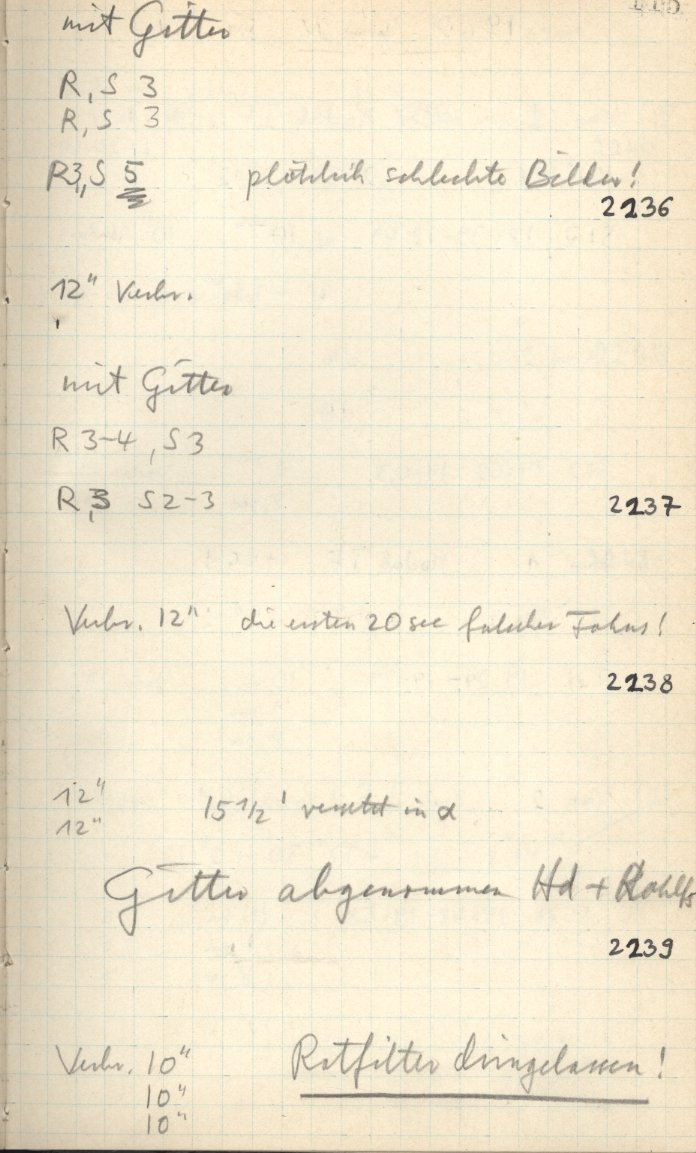 mit Gitter
R, S 3
R, S 3
R3, S 5 plötzlich schlechte Bilder!
2236
12" Verbr.
mit Gitter
R 3-4, S 3
R, 3 S 2-3
2237
Verbr. 12" die ersten 20 sec falscher Fokus!
2238
12" 15 1/2' versetzt in α
12"
Gitter abgenommen Hd + Rohlfs
2239
Verbr. 10" Rotfilter dringelassen!
10"
10"